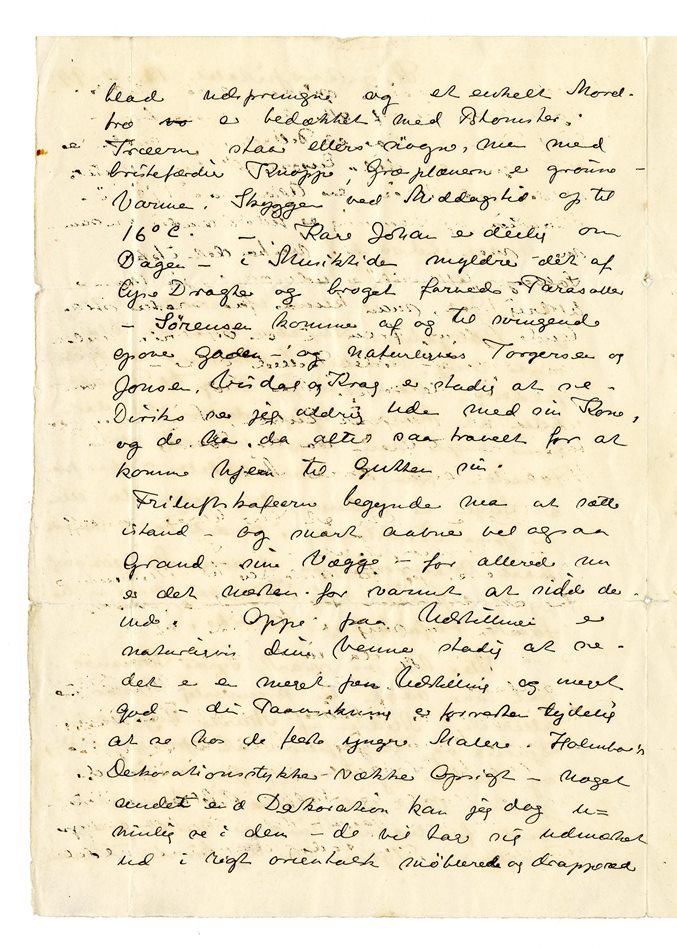 blad udsprungne og et enkelt Mord-
træ er bedækket med Blomster.
Træerne staar ellers nøgne, men med
bristefærdie Knoppe, Græsplænern e grønne –
Varme i Skyggen ved Middagstid op til
16° C. – Karl Johan er deilig om
Dagen – i Musiktiden myldre det af
lyse Dragter og broget farvede Parasoller
– Sørensen komme af og til svingende
opover gaden – og naturligvis Torgersen og
Jonsen, Visdal og Krag e stadig at se –
Diriks se jeg aldrig ude med sin Kone,
og de ha da altid saa travelt for at
komme hjem til Gutten sin.
Friluftskafeern begynde nu at sætte
istand – og snart aabne vel ogsaa
Grand sine Vægge – for allerede nu
e det næsten for varmt at sidde de
inde. Oppe paa Udstillinge e
naturligvis dine Venne stadig at se –
det e en meget pæn Udstilling og meget
god – din Paavirkning e forresten tydelig
at se hos de fleste yngre Malere. Holmbo's
Dekorationsstykke vække Opsigt – noget
andet end Dekoration kan jeg dog u=
mulig se i dem – de vil tage sig udmærket
ud i rigt orientalsk møblerede og drapperede